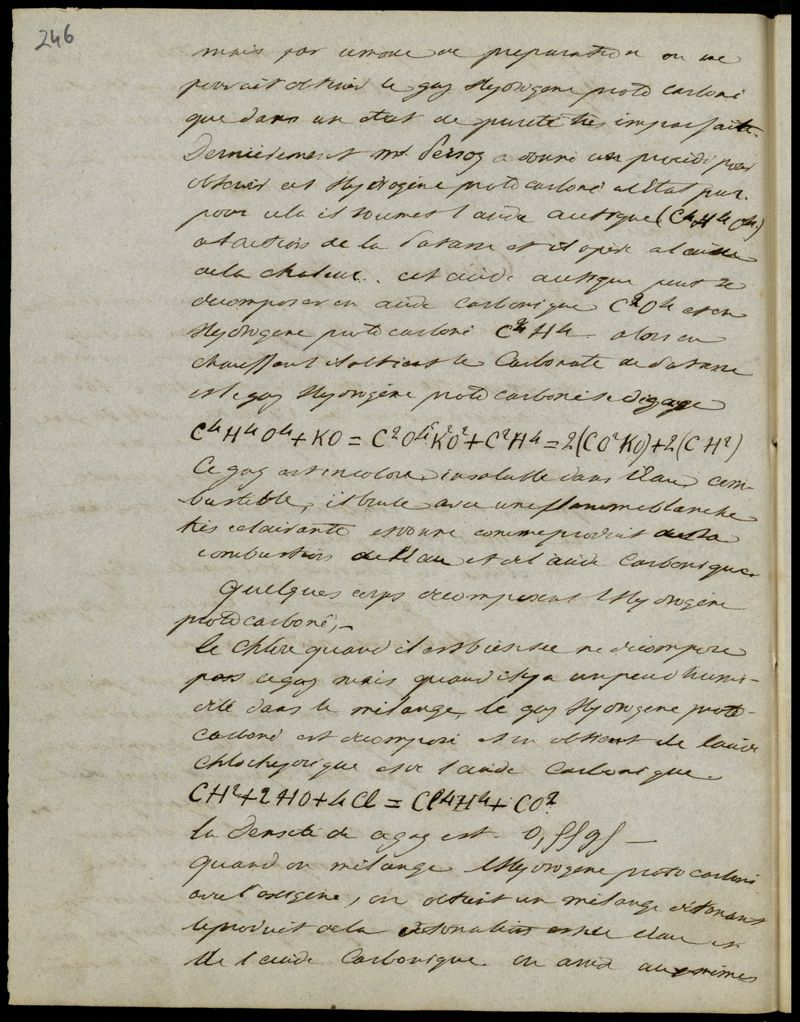 246
mais par ce mode de preparation on ne
pouvait obtenir le gaz Hydrogène proto carboné
que dans un état de pureté très imparfaite.
Dernièrement Mr Persoz a donné un procédé pour
obtenir cet Hydrogène proto carboné a l'état pur.
pour cela il soumet l'acide acetique (C4H4O4.)
a l'action de la Potasse et il opère a l'aide
de la chaleur. cet acide acetique peut se
decomposer en acide carbonique C2O4 et en
Hydrogène proto carboné C2H4. alors en
chauffant il obtient le Carbonate de Potasse
et le gaz Hydrogène proto carboné se dégage
C4H4O4+KO = C2O4K2O2+C2H4 = 2(CO2KO)+2(CH2)
Ce gaz est incolore, insoluble dans l'eau com-
bustible, il brule avec une flamme blanche
très eclairante et donne comme produit de sa
combustion de l'eau et de l'acide Carbonique.
Quelques corps decomposent l'Hydrogène
proto carboné,-
le Chlore quand il est bien sec ne decompose
pas ce gaz mais quand il y a un peu d'humi-
dité dans le mélange, le gaz Hydrogène proto-
carboné est decomposé et on obtient de l'acide
Chlorhydrique et de l'acide Carbonique.
CH2+2HO+4Cl = Cl4H4+CO2
la Densité de ce gaz est. 0,5595 —
quand on mélange l'Hydrogène proto carboné
avec l'oxigène, on obtient un mélange détonant
le produit de la détonation est de l'eau et
de l'acide Carbonique. on arrive aux mêmes